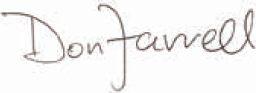 Don Farrell